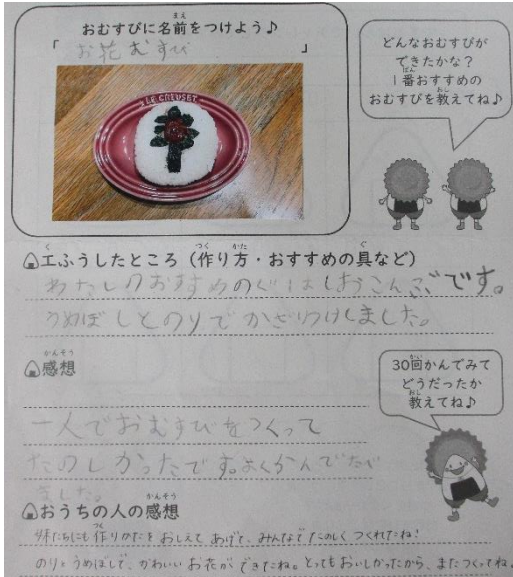 おむすびに名前をつけよう♪
まえ
「お花むすび」
LE CREUSET
どんなおむすびが
できたかな?
1番おすすめの
ばん
おむすびを教えてね♪
おし
工ふうしたところ(作り方・おすすめの具など)
く つく かた ぐ
わたしのおすすめのぐはしおこんぶです。
うめぼしとのりでかざりつけしました。
感想
かんそう
30回かんでみて
かい
どうだったか
教えてね♪
おし
一人でおむすびをつくって
たのしかったです。よくかんでたべ
ました。
おうちの人の感想
かんそう
妹たちにも作りかたをおしえてあげて、みんなでたのしくつくれたね!
つく
のりとうめぼしで、かわいいお花ができたね。とってもおいしかったから、またつくってね。